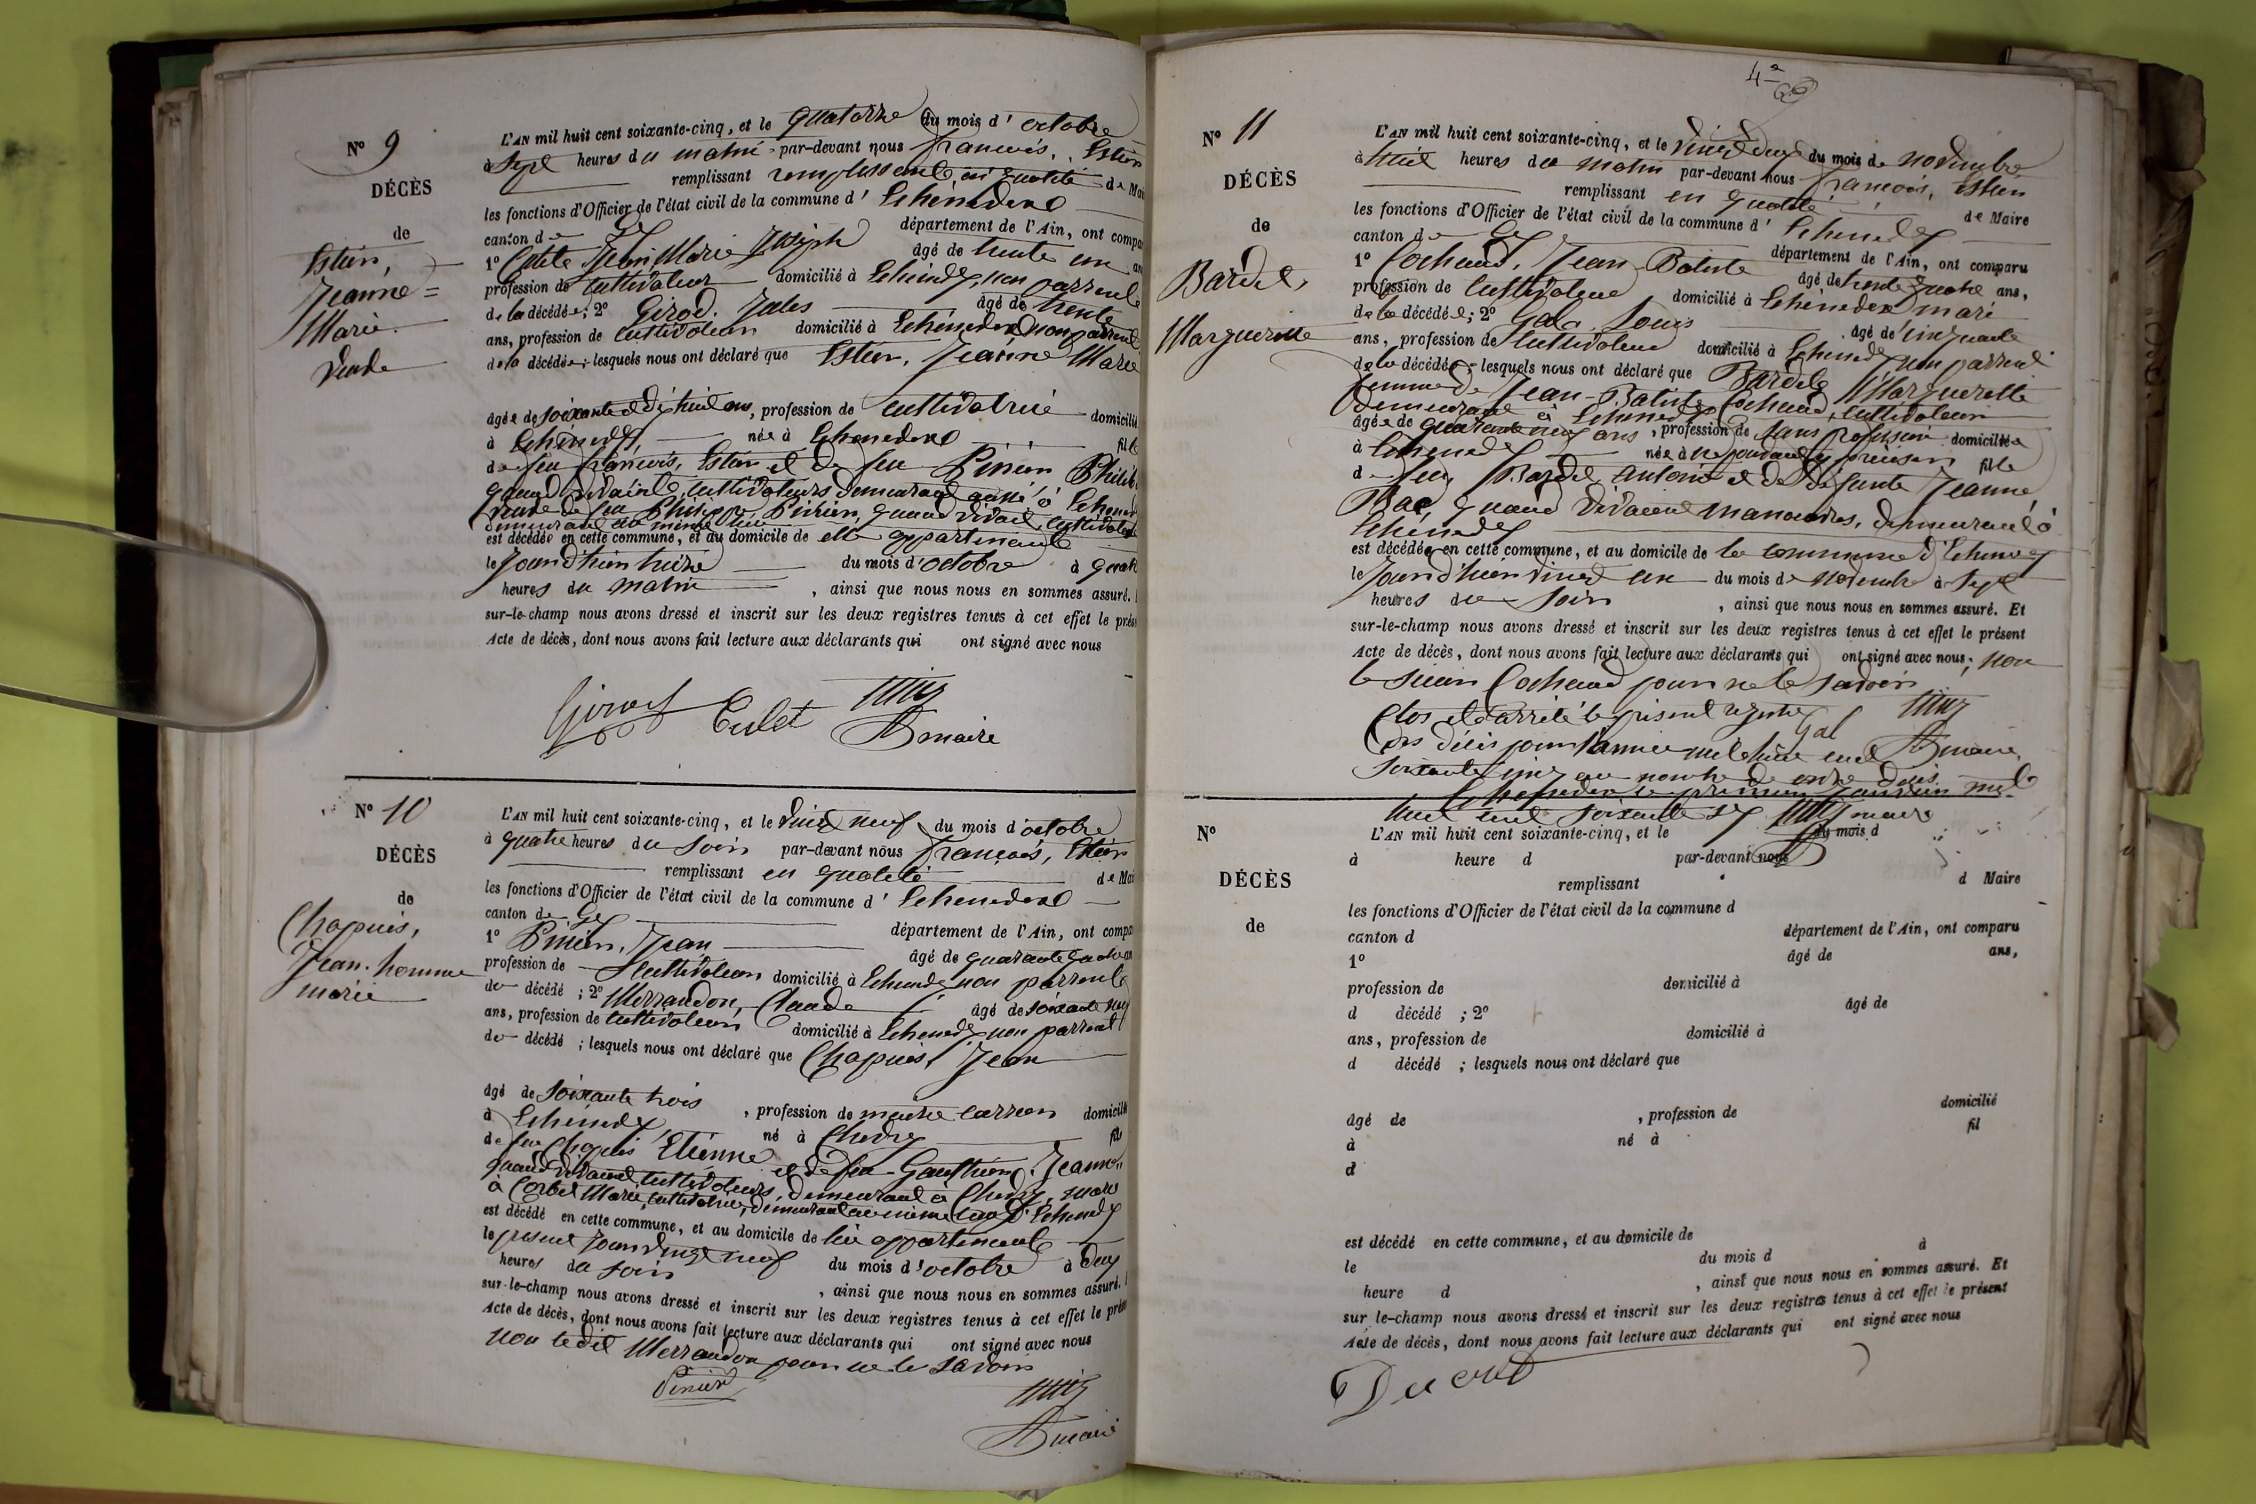 No 9
DÉCÈS
de
Estier,
Jeanne=
Marie.
Veuve
L'AN mil huit cent soixante-cinq, et le quatorze du mois d'octobre
à sept heures du matin par-devant nous françois, Estier
remplissant en qualité de Mai
les fonctions d'Officier de l'état civil de la commune d'Echenevex
canton de Gex département de l'Ain, ont compa
1º Jean Marie Joseph âgé de trente un an
profession de cultivateur domicilié à Echenevex, non parrent
de la décédée; 2º Girod, Jules âgé de trente
ans, profession de cultivateur domicilié à Echenevex non parrent
de la décédée; lesquels nous ont déclaré que Estier, Jeanne Marie
âgée de soixante et dix huit ans, profession de cultivatrice domicilié
à Echenevex, née à Echenevex fille
de feu françois, Estier et de feu Pinier Philib
quand vivaient cultivateurs demeurant aussi à Echenev
veuve de feu Philippe Pinier, quand vivait cultivateur
demeurant au même lieu
est décédée en cette commune, et au domicile de elle appartenant
le jour d'hier treize du mois d'octobre à quatre
heures du matin, ainsi que nous nous en sommes assuré.
sur-le-champ nous avons dressé et inscrit sur les deux registres tenus à cet effet le prése
Acte de décès, dont nous avons fait lecture aux déclarants qui ont signé avec nous
Girod Culet
maire
No 10
DÉCÈS
de
Chapuis,
Jean. homme
marié
L'AN mil huit cent soixante-cinq, et le vingt neuf du mois d'octobre
à quatre heures du soir par-devant nous françois, Estier
remplissant en qualité de Mai
les fonctions d'Officier de l'état civil de la commune d'Echenevex
canton de Gex département de l'Ain, ont compa
1º Pinier, Jean âgé de quarante quatre an
profession de cultivateur domicilié à Echenevex non parrent
du décédé; 2º Merrandon, Claude âgé de soixante
ans, profession de cultivateur domicilié à Echenevex non parrent
du décédé; lesquels nous ont déclaré que Chapuis, Jean
âgé de soixante trois, profession de maitre carreur domicilié
à Echenevex, né à Chevry fils
de feu Chapuis Etienne et de feu Gauthier, Jeanne
quand vivaient cultivateurs, demeurant à Chevry, marié
à Corbet Marie, cultivatrice, demeurant au même lieu d'Echenevex
est décédé en cette commune, et au domicile de lui appartenant
le présent jour vingt neuf du mois d'octobre à deux
heures du soir, ainsi que nous nous en sommes assuré.
sur-le-champ nous avons dressé et inscrit sur les deux registres tenus à cet effet le prése
Acte de décès, dont nous avons fait lecture aux déclarants qui ont signé avec nous
non le dit Merrandon pour ne le savoir
Pinier
maire
No 11
DÉCÈS
de
Bardet,
Marguerite
L'AN mil huit cent soixante-cinq, et le vingt deux du mois de novembre
à huit heures du matin par-devant nous françois, Estier
remplissant en qualité de Maire
les fonctions d'Officier de l'état civil de la commune d'Echenevex
canton de Gex département de l'Ain, ont comparu
1º Cochaud, Jean-Batiste âgé de trente quatre ans,
profession de cultivateur domicilié à Echenevex mari
de la décédée; 2º Gal, Louis âgé de cinquante
ans, profession de cultivateur domicilié à Echenevex non parrent
de la décédée lesquels nous ont déclaré que Bardet, Marguerette
femme de Jean-Batiste Cochaud, cultivateur
demeurant à Echenevex
âgée de quarante neuf ans, profession de sans profession domiciliée
à Echenevex née à ne pouvant préciser fille
de feu Bardet, antoine et de défunte Jeanne
quand vivaient manoeuvres, demeurant à
Echenevex
est décédée en cette commune, et au domicile de la commune d'Echenevex
le jour d'hier vingt un du mois de novembre à sept
heures du soir, ainsi que nous nous en sommes assuré. Et
sur-le-champ nous avons dressé et inscrit sur les deux registres tenus à cet effet le présent
Acte de décès, dont nous avons fait lecture aux déclarants qui ont signé avec nous; non
le sieur Cochaud pour ne le savoir
Clos et arrêté le présent registre Gal
des décès pour l'année mil huit cent maire
soixante cinq au nombre de onze décès.
Echenevex le premier janvier mil
huit cent soixante six maire
No
DÉCÈS
de
L'AN mil huit cent soixante-cinq, et le du mois d
à heure d par-devant nous
remplissant d Maire
les fonctions d'Officier de l'état civil de la commune d
canton d département de l'Ain, ont comparu
1º âgé de ans,
profession de domicilié à
d décédé ; 2º âgé de
ans, profession de domicilié à
d décédé ; lesquels nous ont déclaré que
âgé de , profession de domicilié
à né à fil
d
est décédé en cette commune, et au domicile de
le du mois d à
heure d , ainsi que nous nous en sommes assuré. Et
sur le-champ nous avons dressé et inscrit sur les deux registres tenus à cet effet le présent
Acte de décès, dont nous avons fait lecture aux déclarants qui ont signé avec nous